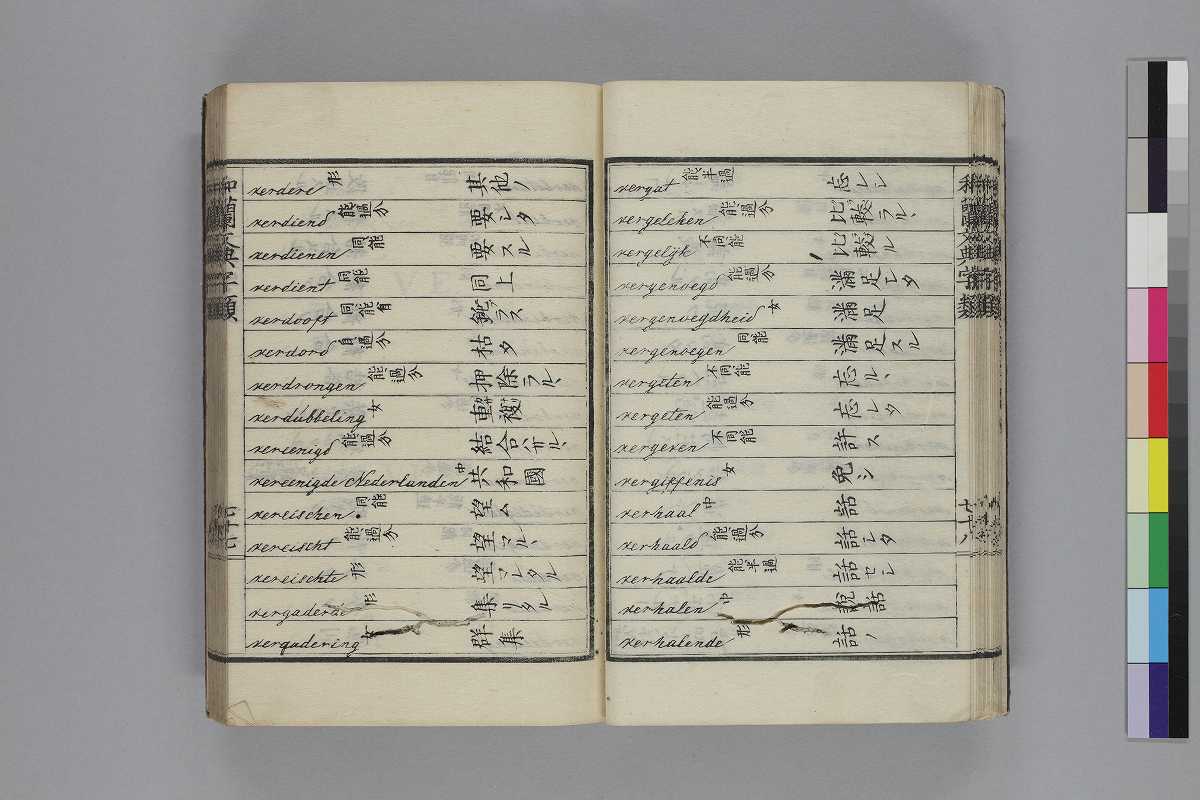 verdere 形 其他ノ
verdiend 能過分 要シタ
verdienen 同能 要スル
verdient 同能 同上
verdooft 同能自
verdord 自過分 枯タ
verdrongen 能過分 押除ラル、
verdubbeling 女 重複
vereenigd 能過分 結合
vereenigde Nederlanden 中 共和國
vereischen 同能 望ム
vereischt 能過分 望マル、
vereischte 形 望マレタル
vergaderde 形 集リタル
vergadering 女 群集
vergat 能半過 忘レシ
vergeleken 能過分 比較ラル、
vergelijk 不同能 比較ル
vergenoegd 能過分 滿足シタ
vergenoegdheid 女 滿足
vergenoegen 同能 滿足スル
vergeten 不同能 忘ル、
vergeten 能過分 忘レタ
vergeven 不同能 許ス
vergiffenis 女 免シ
verhaal 中 話
verhaald 能過分 話シタ
verhaalde 能半過 話セシ
verhalen 中 說話
verhalende 形 話ノ